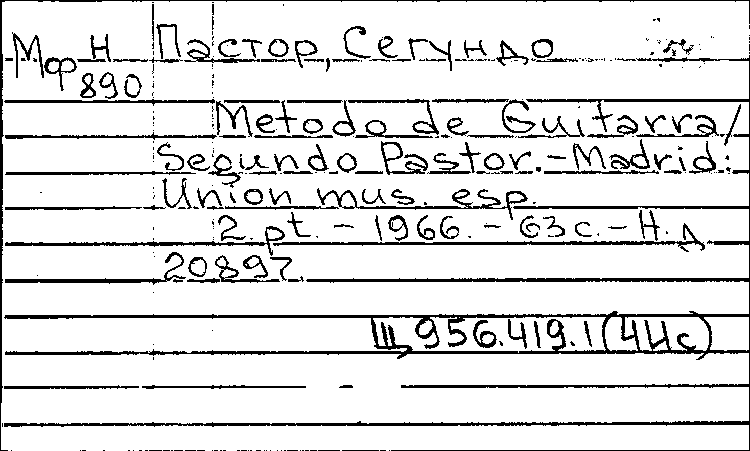 Мф Н 890
Пастор, Сегундо
Metodo de Guitarra/
Segundo Pastor.-Madrid:
Union mus. esp.
2. pt. - 1966. - 63 с. - Н. д.
20897.
Щ956.419.1(4Ис)